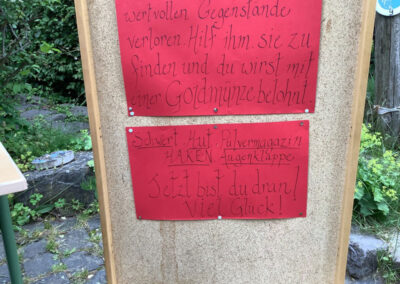 wertvollen Gegenstände
verloren. Hilf ihm, sie zu
finden und du wirst mit
einer Goldmünze belohnt
Schwert Hut Pulvermagazin
HAKEN Augenklappe
Jetzt bist du dran!
Viel Glück!